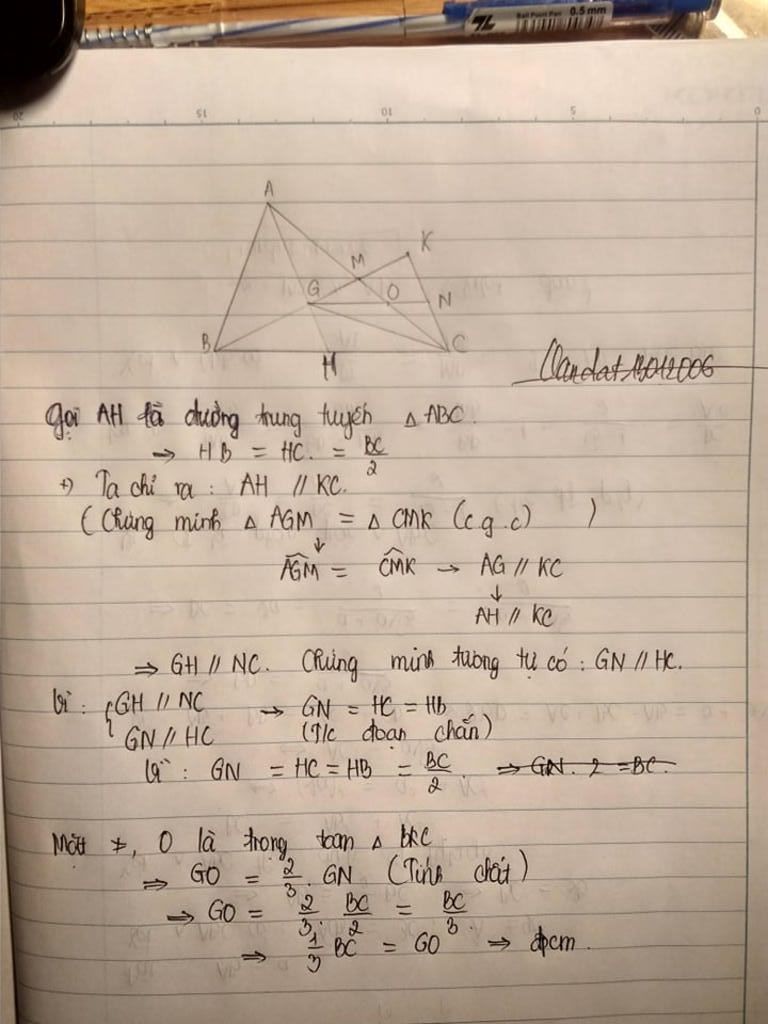 Ball Point Pen 0.5 mm
20 15 10 5 0
A
K
M
G O N
B H C
Vandat12012006
Gọi AH là đường trung tuyến △ ABC.
→ HB = HC. = BC/2
+) Ta chỉ ra : AH // KC.
( Chứng minh △ AGM = △ CMK (c.g.c) )
↓
AGM^ = CMK^ → AG // KC
↓
AH // KC
⇒ GH // NC. Chứng minh tương tự có : GN // HC.
Vì : { GH // NC → GN = HC = HB
GN // HC (T/c đoạn chắn)
Vì : GN = HC = HB = BC/2. ⇒ GN. 2 = BC.
Mặt ≠, O là trọng toam △ BKC
⇒ GO = 2/3 . GN (Tính chất)
→ GO = 2/3 . BC/2 = BC/3.
⇒ 1/3 BC = GO ⇒ đpcm.